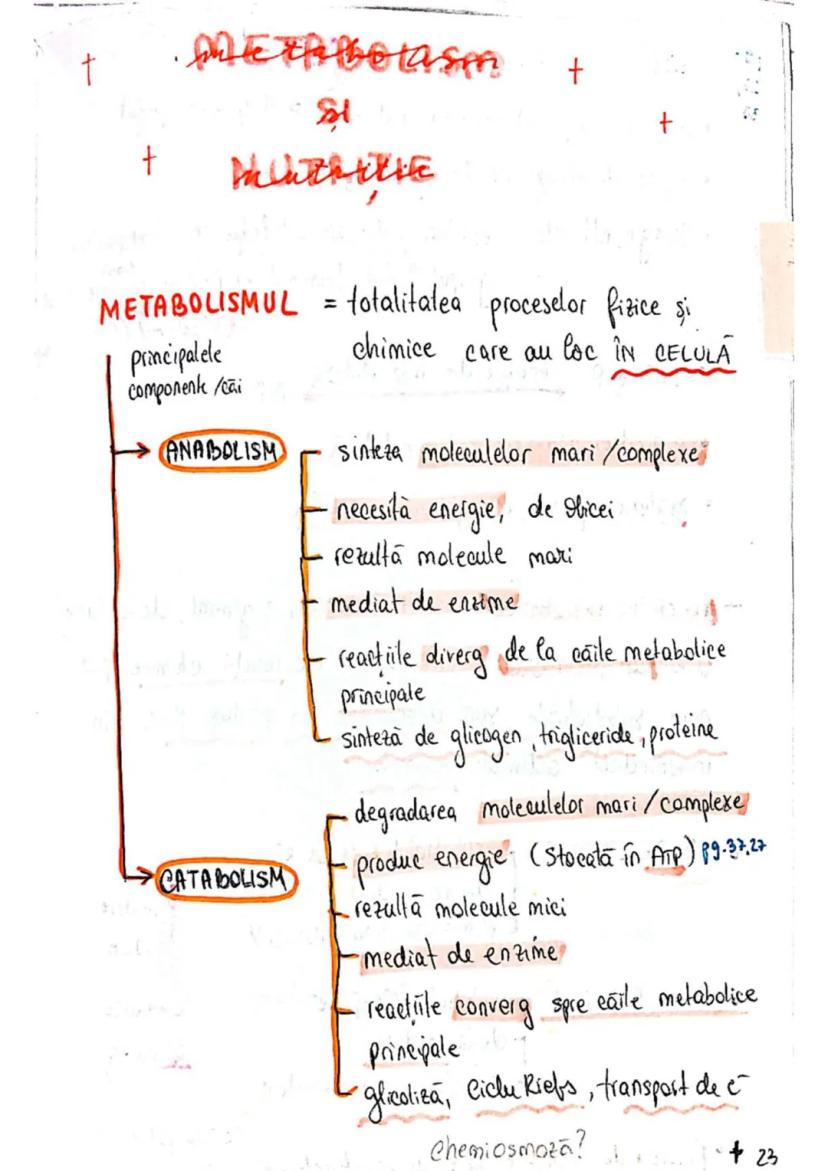 METABOLISM
ȘI
NUTRIȚIE
METABOLISMUL = totalitatea proceselor fizice și
chimice care au loc ÎN CELULĂ
principalele
componente/căi
ANABOLISM
sinteza moleculelor mari/complexe
necesită energie, de obicei
rezultă molecule mari
mediat de enzime
reacțiile diverg de la căile metabolice
principale
sinteză de glicogen, trigliceride, proteine
CATABOLISM
degradarea moleculelor mari/complexe
produc energie (stocată în ATP) pg.37,27
rezultă molecule mici
mediat de enzime
reacțiile converg spre căile metabolice
principale
glicoliză, Ciclu Krebs, transport de e-
Chemiosmoză?
23